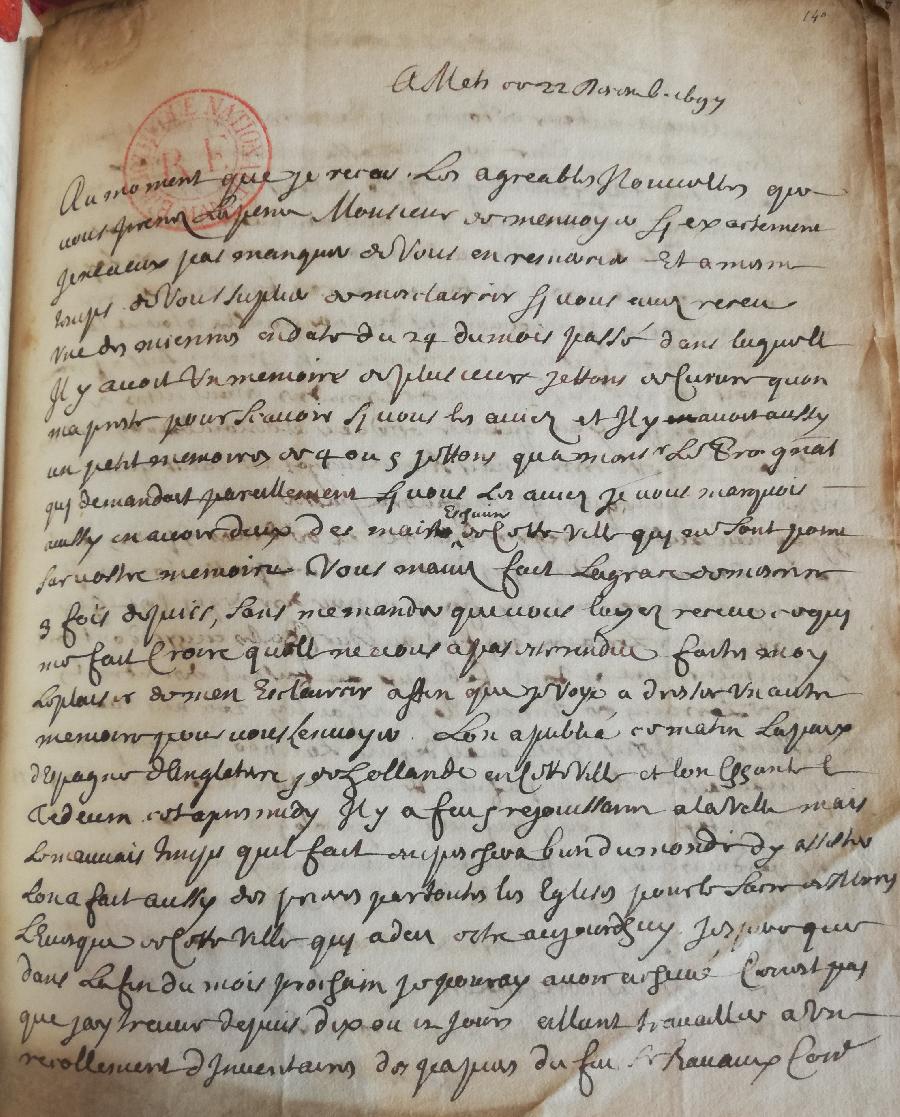 140
A Metz ce 22 Decemb. 1697
BIBLIOTHEQUE NATIONALE
R F
Au moment que je recoy Les agreables Nouvelles que
vous prenez La peine Monsieur de menvoyer sy exactement
Je ne veux pas manquer de Vous en remercier Et a mesme
temps de Vous suplier de mesclaircir sy vous avez receu
une des miennes en date du 24 du mois passé dans laquelle
Il y avoit Un memoire de plusieurs Jettons de Cuivre quon
ma presté pour Scavoir sy vous les aviez et Il y en avoit aussy
un petit memoires de 4 ou 5 jettons qua monsr Le
quy demandoit pareillement sy vous Les aviez je vous marquois
aussy en avoir deux des maistre Eschevin de Cette Ville quy ne sont point
sur vostre memoire Vous mavez fait La grace de mescrire
3 fois depuis, sans me mander que vous layez receue ce quy
me fait Croire quelle ne vous a pas esté rendue faites moy
Le plaisir de men Esclaircir affin que je Vous a dresse Un autre
memoire pour vous Lenvoyer. Lon a publié ce matin La paix
dEspagne dAngleterre & de Hollande en Cette Ville et lon Chante le
Tedeum cet apres midy Il y a feu & rejouissance a la Velle mais
Le mauvais temps quil fait empeschera bien du monde dy assister
Lon a fait aussy des prieres par toutes les Eglises pour le Sacre de
LEvesque de Cette Ville quy a deu estre aujourdhuy. Jespere que
dans La fin du mois prochain je pouray avoir achevé Ce nest pas
que jay treuvé depuis dix ou 12 Jours allant travailler a Un
recollement dInventaires des papiers du feu Sr Ravaux Conr